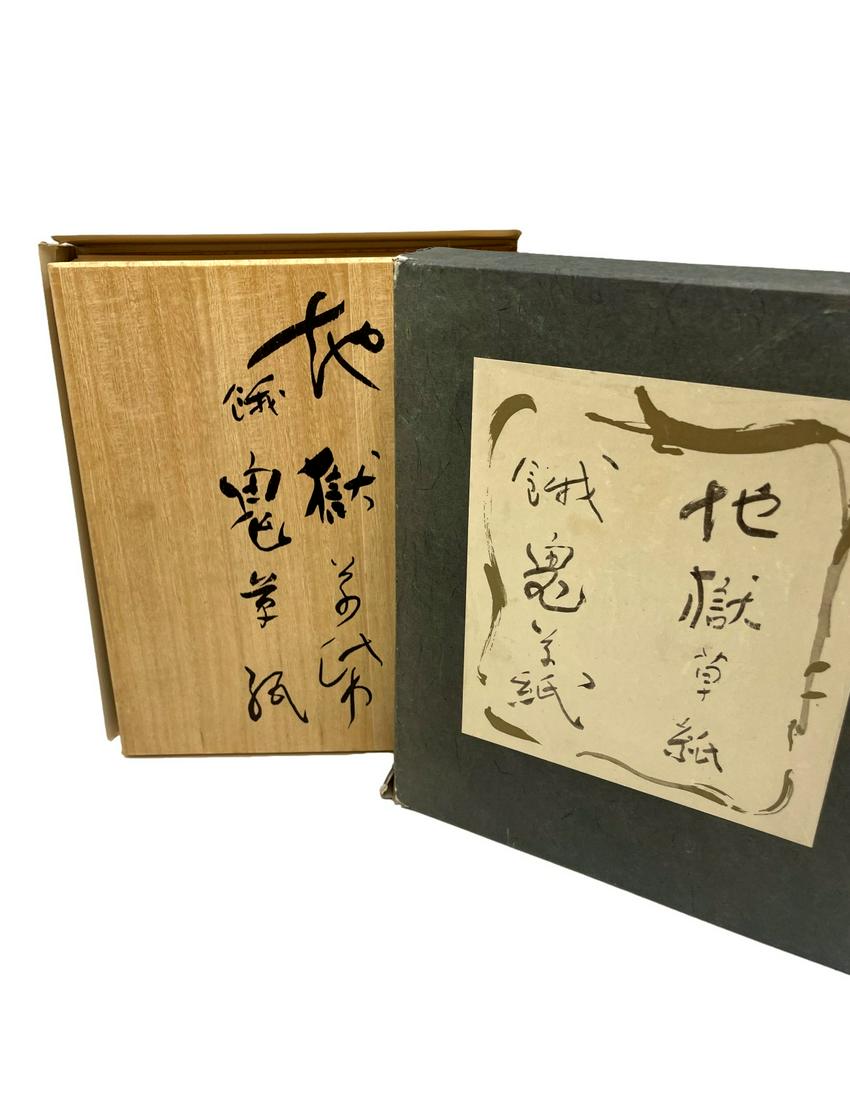 地獄草紙
餓鬼草紙
地獄草紙
餓鬼草紙